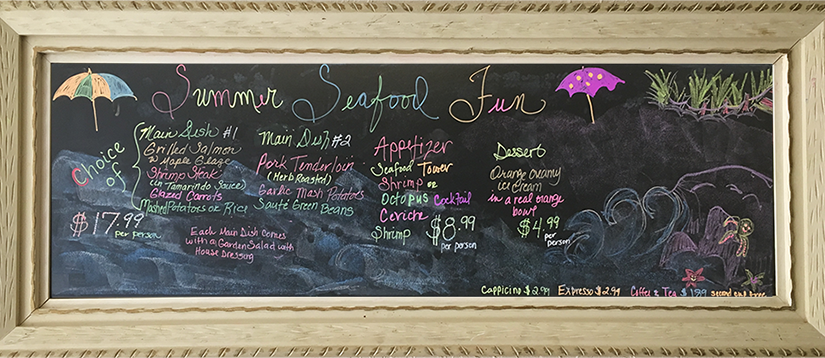 Summer Seafood Fun
Choice
of
Main Dish #1
Grilled Salmon
w Maple Glaze
Shrimp Steak
(in Tamarindo Sauce)
Glazed Carrots
Mashed Potatoes or Rice
$17.99
per person
Main Dish #2
Pork Tenderloin
(Herb Roasted)
Garlic Mash Potatoes
Sauté Green Beans
Each Main Dish Comes
with a Garden Salad with
House Dressing
Appetizer
Seafood Tower
Shrimp or
Octopus Cocktail
Ceviche
Shrimp
$8.99
per person
Dessert
Orange creamy
ice cream
in a real orange
bowl
$4.99
per
person
Cappicino $2.99 Expresso $2.99 Coffee & Tea $1.99 second cup free